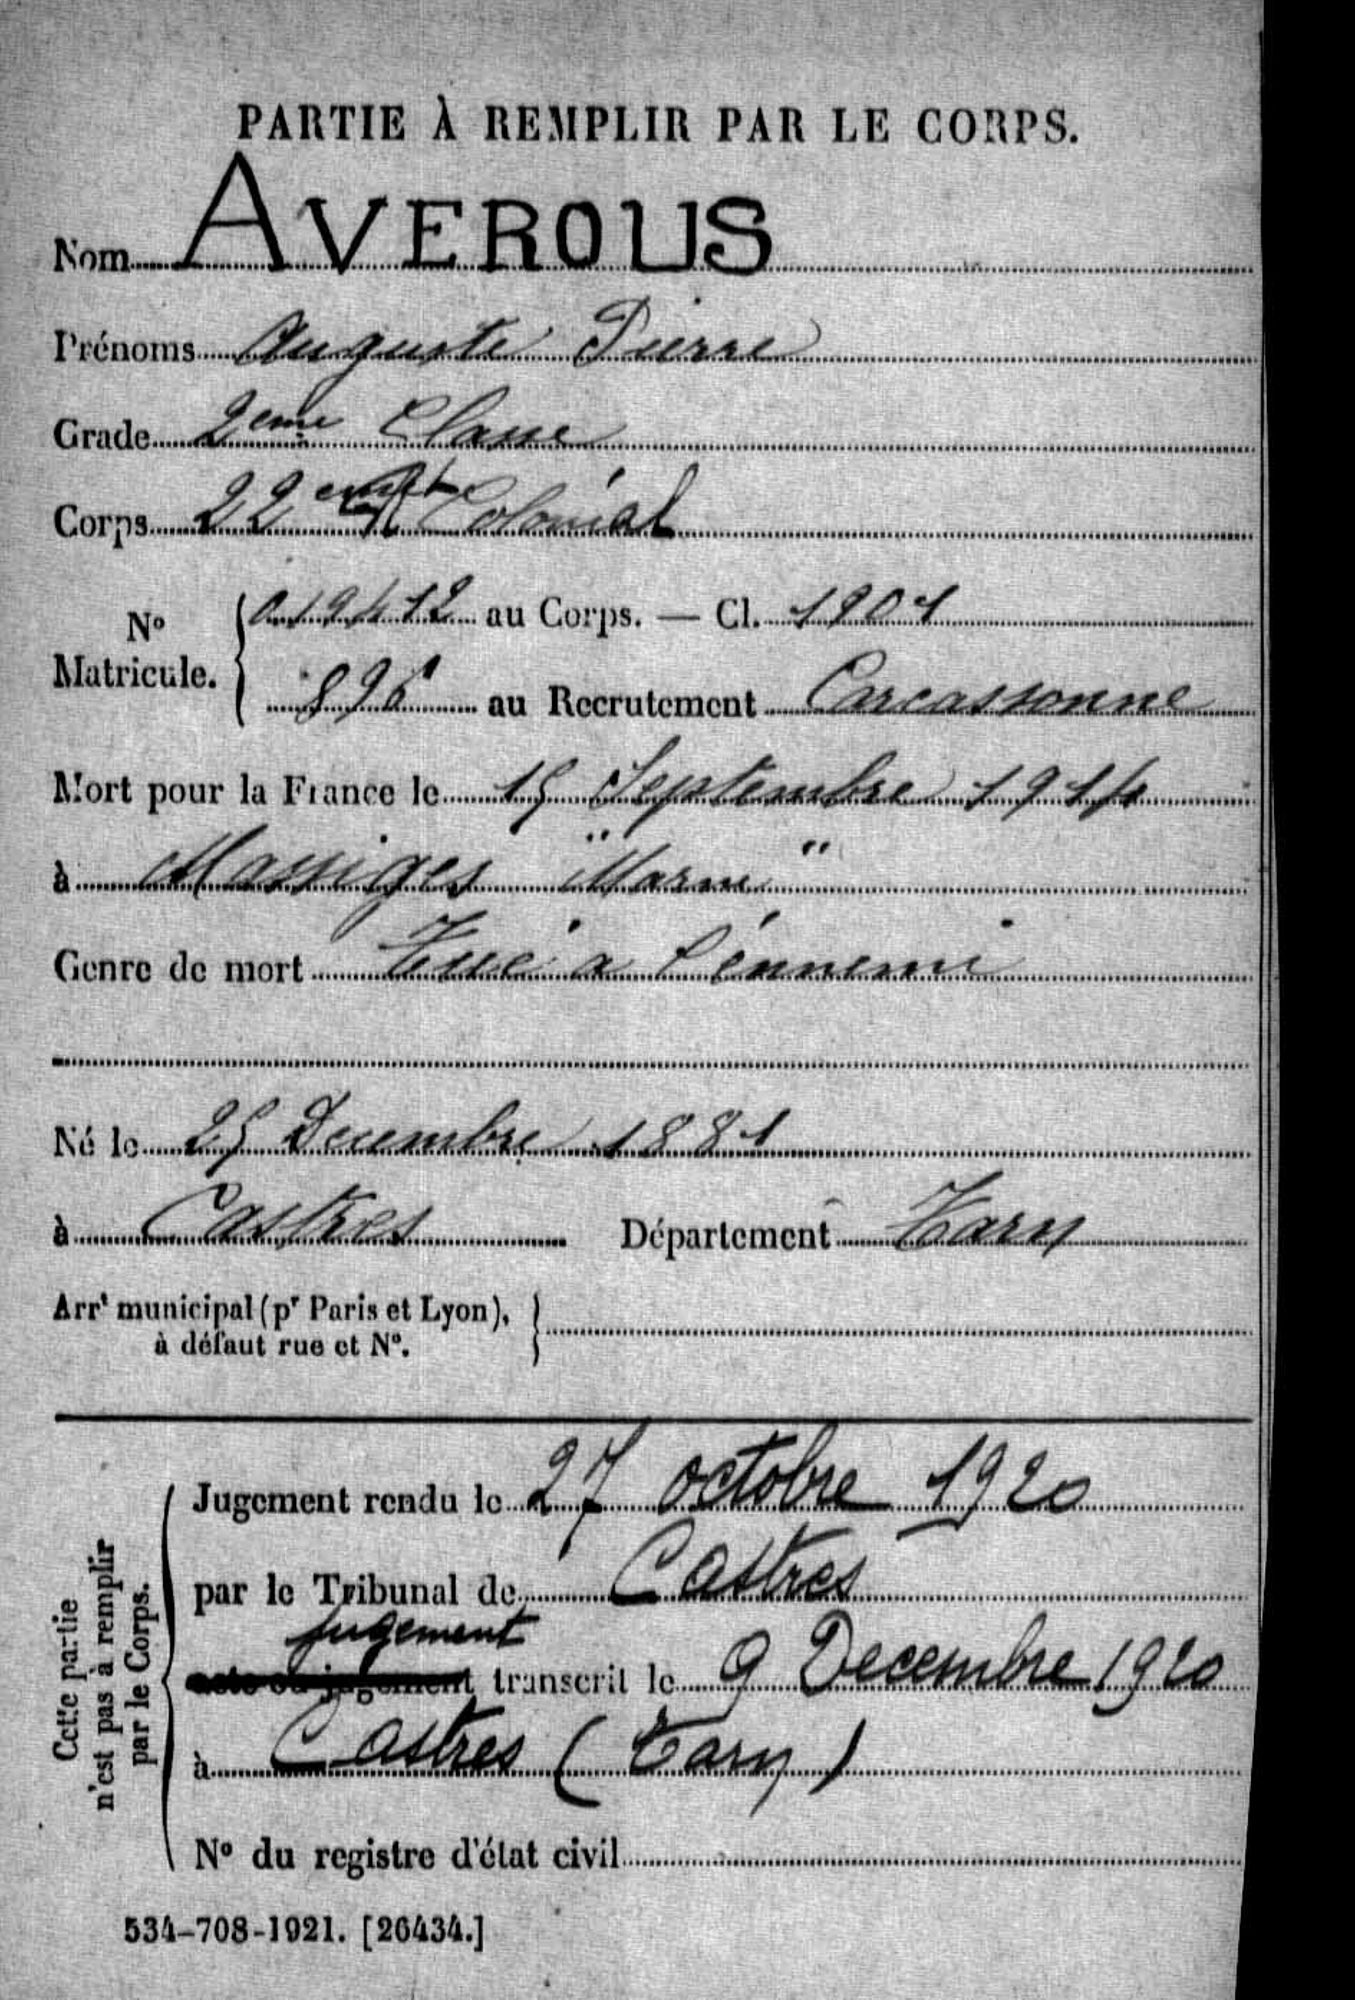 PARTIE À REMPLIR PAR LE CORPS.
Nom AVEROUS
Prénoms Auguste Pierre
Grade 2eme Classe
Corps 22eme Rgt Colonial
No Matricule. 019412 au Corps. — Cl. 1901
896 au Recrutement Carcassonne
Mort pour la France le 15 Septembre 1914
à Massiges "Marne"
Genre de mort Tué à l'énnemi
Né le 25 Decembre 1881
à Castres Département Tarn
Arrt municipal (pr Paris et Lyon),
à défaut rue et No.
Cette partie
n'est pas à remplir
par le Corps.
Jugement rendu le 27 octobre 1920
par le Tribunal de Castres
jugement
acte ou jugement transcrit le 9 Decembre 1920
à Castres (Tarn)
No du registre d'état civil
534-708-1921. [26434.]